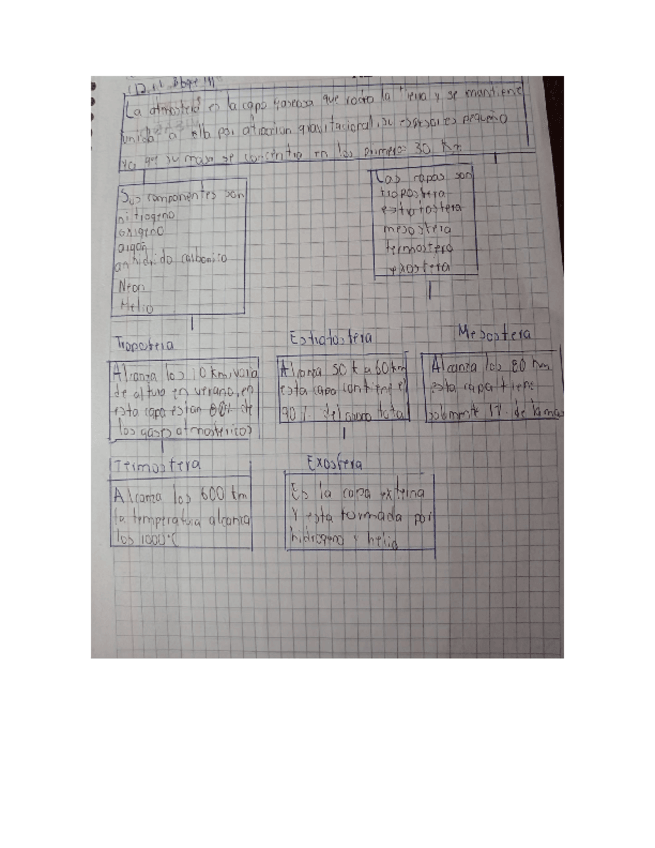 La atmosfera es la capa gaseosa que rodea la tierra y se mantiene
unida a ella por atraccion gravitacional, su espesor es pequeño
ya que su masa se concentra en los primeros 30 Km
Sus componentes son
nitrogeno
oxigeno
argon
anhidrido carbonico
Neon
Helio
Las capas son
troposfera
estratosfera
mesosfera
termosfera
exosfera
Troposfera
Alcanza los 10 km, varia
de altura en verano, en
esta capa estan 80% de
los gases atmosfericos
Estratosfera
Alcanza 50 k a 60 km
esta capa contiene el
90% del ozono total
Mesosfera
Alcanza los 80 km
esta capa tiene
solamente 1% de la masa
Termosfera
Alcanza los 600 km
la temperatura alcanza
los 1000°C
Exosfera
Es la capa externa
Y esta formada por
hidrogeno y helio